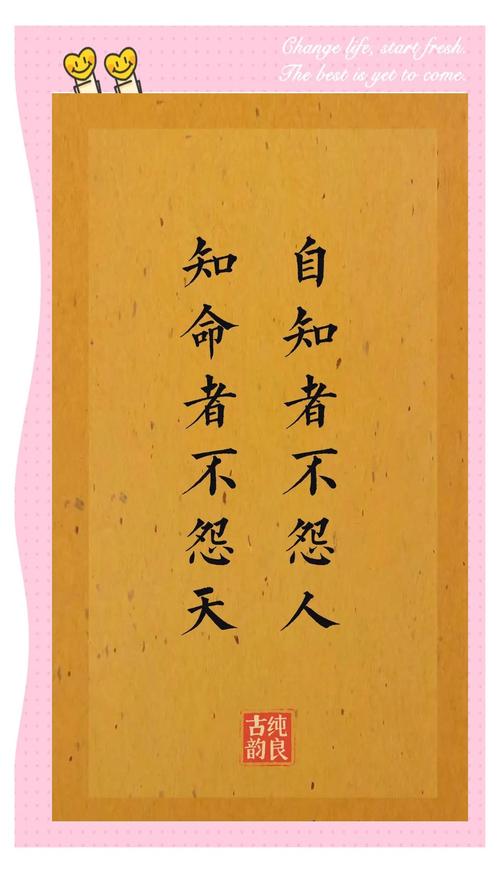 Change life, start fresh.
The best is yet to come.
自知者不怨人
知命者不怨天
纯良
古韵